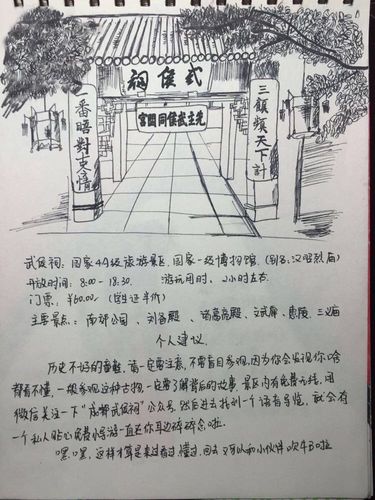 武侯祠
先主武侯同閟宮
三顧頻天下計
番晤對古今情
武侯祠：国家4A级旅游景区、国家一级博物馆.（别名：汉昭烈庙）
开放时间：8:00-18:30. 游玩用时：2小时左右.
门票：¥60.00.（学生证半价）
主要景点：南郊公园、刘备殿、诸葛亮殿、文武廊、惠陵、三义庙
个人建议.
历史不好的童鞋，请一定要注意，不要盲目参观，因为你会发现你啥
都看不懂，一般参观这种古物，一定要了解背后的故事，景区内有免费无线，用
微信关注一下“成都武侯祠”公众号，然后进去找到一个语音导览，就会有
一个私人贴心免费小导游一直在你耳边碎碎念啦.
嘿嘿，这样才算是来过看过懂过，回去又可以和小伙伴吹牛B啦